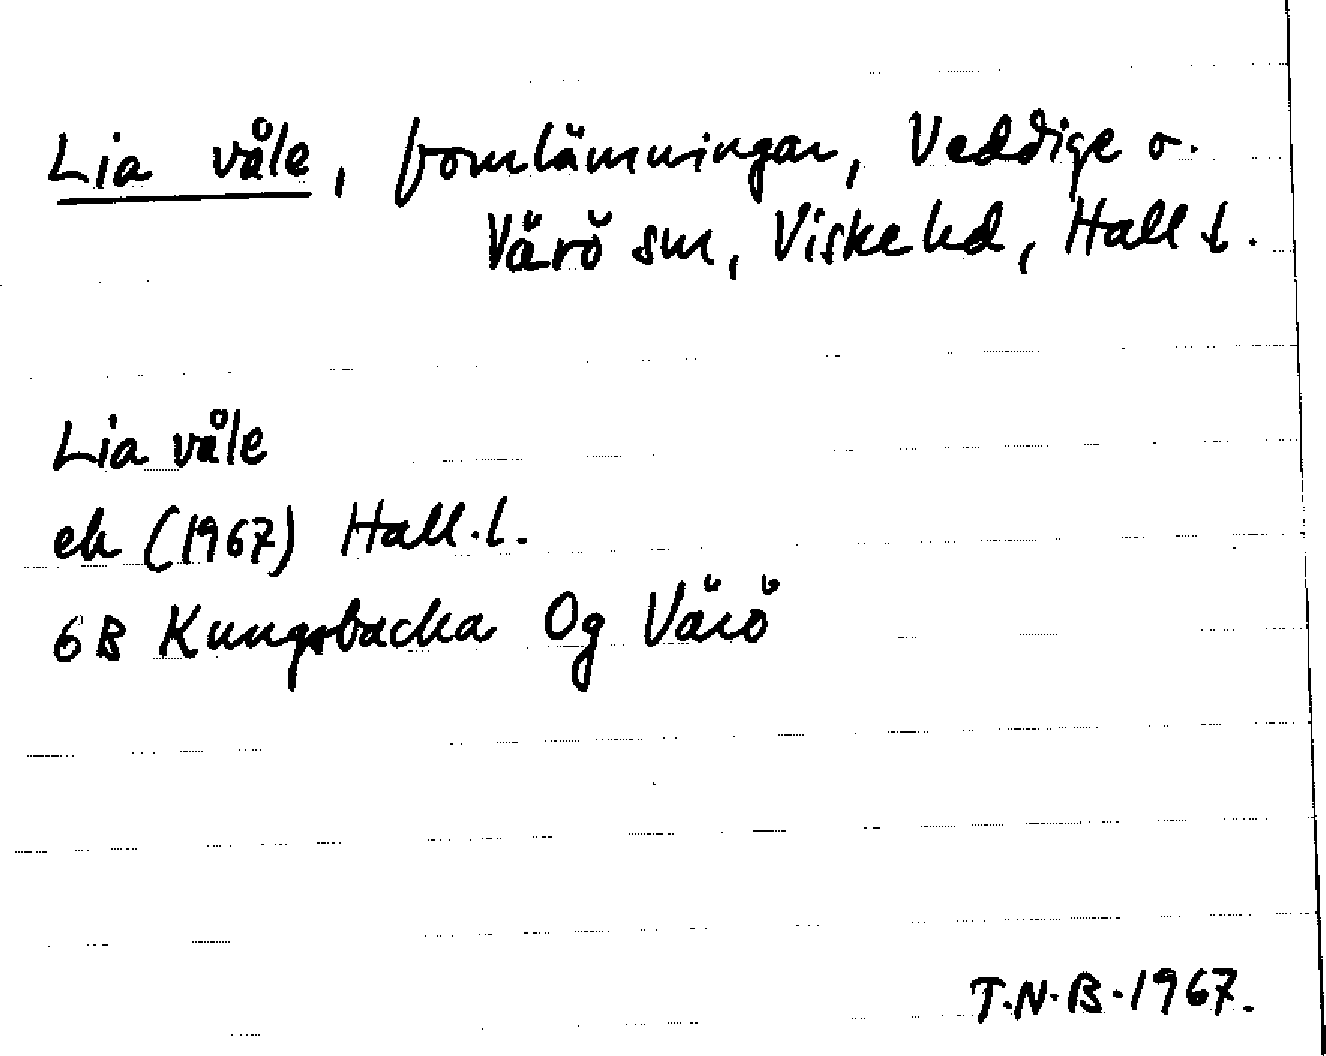 Lia våle, fornlämningar, Veddige o.
Värö snr, Viske hd, Hall l.
Lia våle
ek (1967) Hall. l.
6B Kungsbacka Og Värö
T.N.B. 1967.